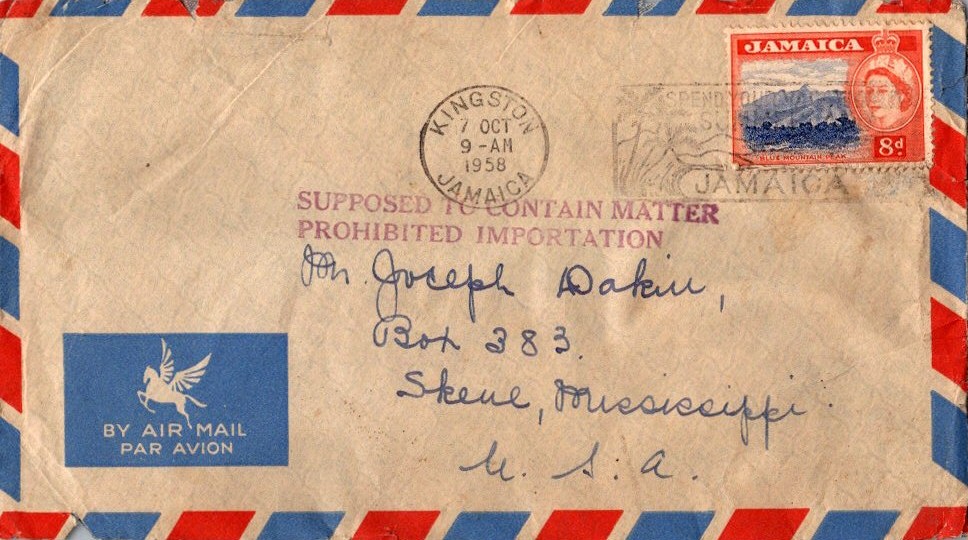 JAMAICA
8d
BLUE MOUNTAIN PEAK
KINGSTON
7 OCT
9-AM
1958
JAMAICA
SPEND YOUR
JAMAICA
SUPPOSED TO CONTAIN MATTER
PROHIBITED IMPORTATION
Mr. Joseph Dakin,
Box 383.
Skene, Mississippi.
U. S. A.
BY AIR MAIL
PAR AVION